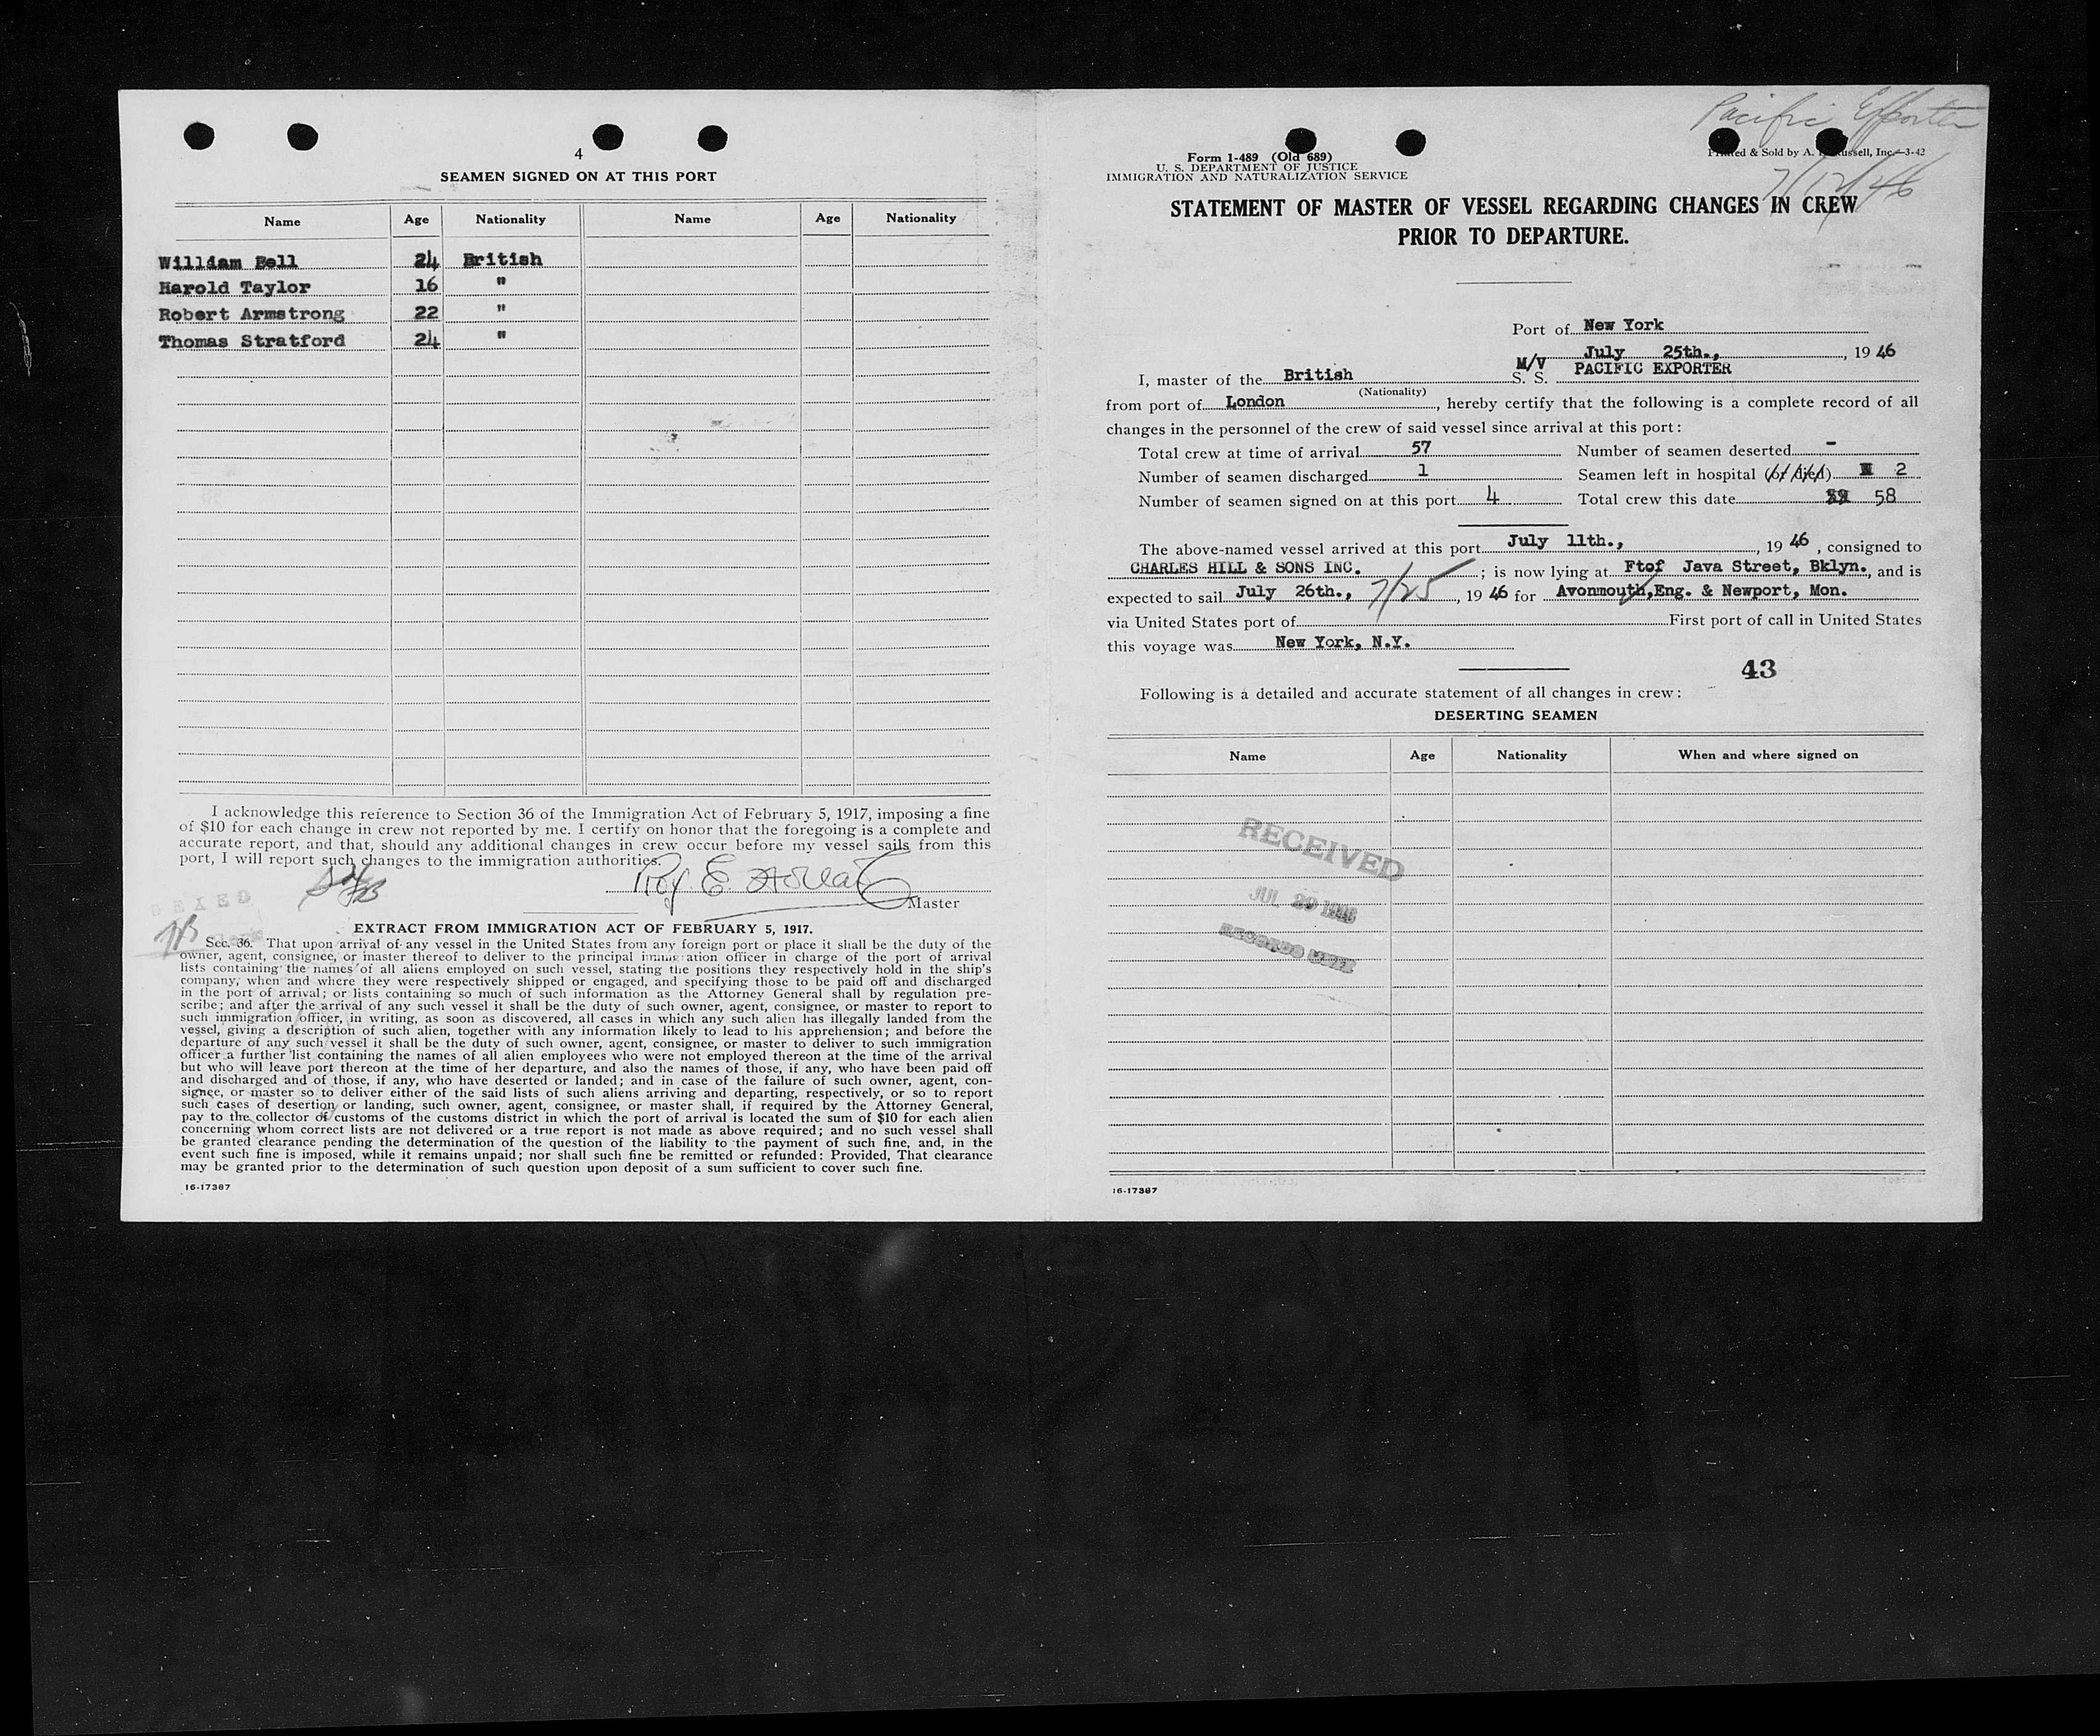 4
SEAMEN SIGNED ON AT THIS PORT
Name Age Nationality Name Age Nationality
William Bell 24 British
Harold Taylor 16 "
Robert Armstrong 22 "
Thomas Stratford 24 "
I acknowledge this reference to Section 36 of the Immigration Act of February 5, 1917, imposing a fine
of $10 for each change in crew not reported by me. I certify on honor that the foregoing is a complete and
accurate report, and that, should any additional changes in crew occur before my vessel sails from this
port, I will report such changes to the immigration authorities.
Master
EXTRACT FROM IMMIGRATION ACT OF FEBRUARY 5, 1917.
Sec. 36. That upon arrival of any vessel in the United States from any foreign port or place it shall be the duty of the
owner, agent, consignee, or master thereof to deliver to the principal immigration officer in charge of the port of arrival
lists containing the names of all aliens employed on such vessel, stating the positions they respectively hold in the ship's
company, when and where they were respectively shipped or engaged, and specifying those to be paid off and discharged
in the port of arrival; or lists containing so much of such information as the Attorney General shall by regulation pre-
scribe; and after the arrival of any such vessel it shall be the duty of such owner, agent, consignee, or master to report to
such immigration officer, in writing, as soon as discovered, all cases in which any such alien has illegally landed from the
vessel, giving a description of such alien, together with any information likely to lead to his apprehension; and before the
departure of any such vessel it shall be the duty of such owner, agent, consignee, or master to deliver to such immigration
officer a further list containing the names of all alien employees who were not employed thereon at the time of the arrival
but who will leave port thereon at the time of her departure, and also the names of those, if any, who have been paid off
and discharged and of those, if any, who have deserted or landed; and in case of the failure of such owner, agent, con-
signee, or master so to deliver either of the said lists of such aliens arriving and departing, respectively, or so to report
such cases of desertion or landing, such owner, agent, consignee, or master shall, if required by the Attorney General,
pay to the collector of customs of the customs district in which the port of arrival is located the sum of $10 for each alien
concerning whom correct lists are not delivered or a true report is not made as above required; and no such vessel shall
be granted clearance pending the determination of the question of the liability to the payment of such fine, and, in the
event such fine is imposed, while it remains unpaid; nor shall such fine be remitted or refunded: Provided, That clearance
may be granted prior to the determination of such question upon deposit of a sum sufficient to cover such fine.
16-17387
Pacific Exporter
7/12/46
Form 1-489 (Old 689)
U. S. DEPARTMENT OF JUSTICE
IMMIGRATION AND NATURALIZATION SERVICE
& Sold by A. Inc.—3-42
STATEMENT OF MASTER OF VESSEL REGARDING CHANGES IN CREW
PRIOR TO DEPARTURE.
Port of New York
July 25th., , 19 46
I, master of the British M/V S. S. PACIFIC EXPORTER
(Nationality)
from port of London , hereby certify that the following is a complete record of all
changes in the personnel of the crew of said vessel since arrival at this port:
Total crew at time of arrival 57 Number of seamen deserted -
Number of seamen discharged 1 Seamen left in hospital (or died) 2
Number of seamen signed on at this port 4 Total crew this date 58
The above-named vessel arrived at this port July 11th., , 19 46 , consigned to
CHARLES HILL & SONS INC. ; is now lying at Ftof Java Street, Bklyn. , and is
expected to sail July 26th., 7/25 , 19 46 for Avonmouth,Eng. & Newport, Mon.
via United States port of First port of call in United States
this voyage was New York, N.Y.
43
Following is a detailed and accurate statement of all changes in crew:
DESERTING SEAMEN
Name Age Nationality When and where signed on
RECEIVED
JUL 29 1946
16-17387